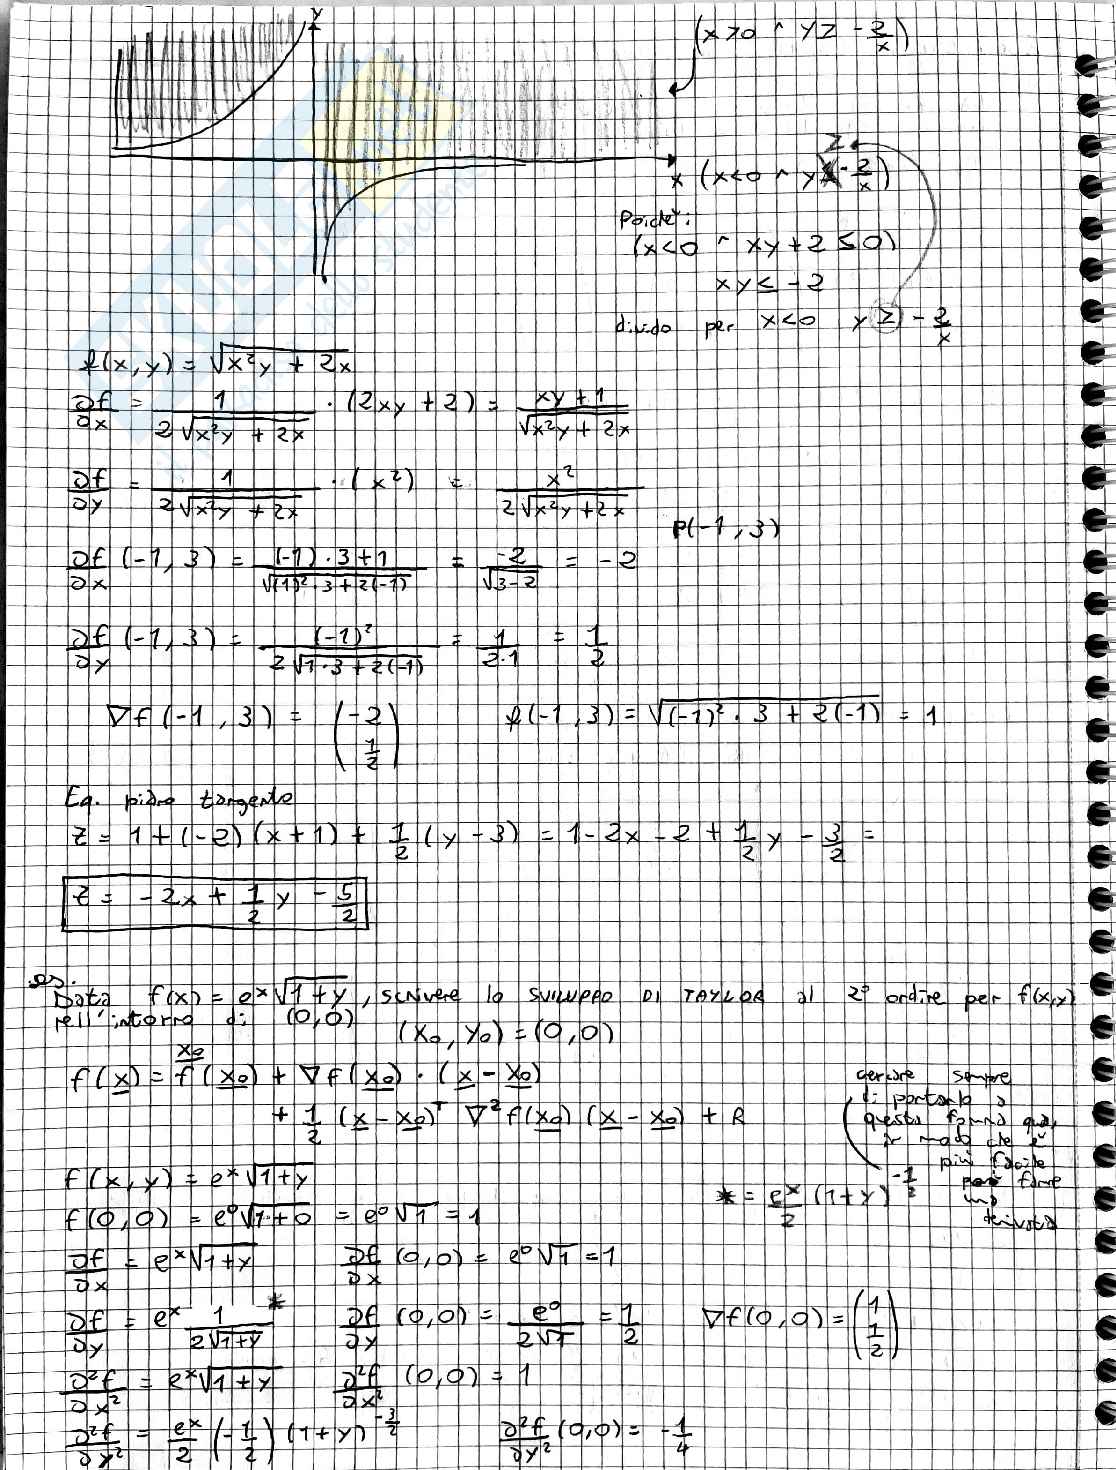 y
(x>0 ^ y≥ -2/x)
x (x<0 ^ y ≥ -2/x)
Poiché:
(x<0 ^ xy+2≤0)
xy ≤ -2
divido per x<0 y ≥ -2/x
f(x,y) = √(x²y + 2x)
∂f/∂x = 1/(2√(x²y + 2x)) · (2xy + 2) = (xy+1)/√(x²y + 2x)
∂f/∂y = 1/(2√(x²y + 2x)) · (x²) = x²/(2√(x²y+2x))
P(-1,3)
∂f/∂x (-1,3) = ((-1)·3+1)/√((1)²·3+2(-1)) = -2/√(3-2) = -2
∂f/∂y (-1,3) = (-1)²/(2√(1·3+2(-1))) = 1/(2·1) = 1/2
∇f(-1,3) = (-2 1/2) f(-1,3) = √((-1)²·3+2(-1)) = 1
Eq. piano tangente
z = 1+(-2)(x+1) + 1/2 (y-3) = 1-2x-2+1/2 y - 3/2 =
z = -2x + 1/2 y - 5/2
es.
Data f(x) = eˣ√(1+y), scrivere lo SVILUPPO DI TAYLOR al 2° ordine per f(x,y)
nell'intorno di (0,0)
(x₀, y₀) = (0,0)
x₀
f(x) = f(x₀) + ∇f(x₀)·(x-x₀)
+ 1/2 (x-x₀)ᵀ ∇²f(x₀) (x-x₀) + R
cercare sempre
di portarla a
questa forma qua,
in modo che è
più facile
poi farne
una
derivata
f(x,y) = eˣ√(1+y)
* = eˣ/2 (1+y)^(-1/2)
f(0,0) = e⁰√(1+0) = e⁰√1 = 1
∂f/∂x = eˣ√(1+y) ∂f/∂x (0,0) = e⁰√1 = 1
∂f/∂y = eˣ 1/(2√(1+y)) * ∂f/∂y (0,0) = e⁰/(2√1) = 1/2 ∇f(0,0) = (1 1/2)
∂²f/∂x² = eˣ√(1+y) ∂²f/∂x² (0,0) = 1
∂²f/∂y² = eˣ/2 (-1/2) (1+y)^(-3/2) ∂²f/∂y² (0,0) = -1/4